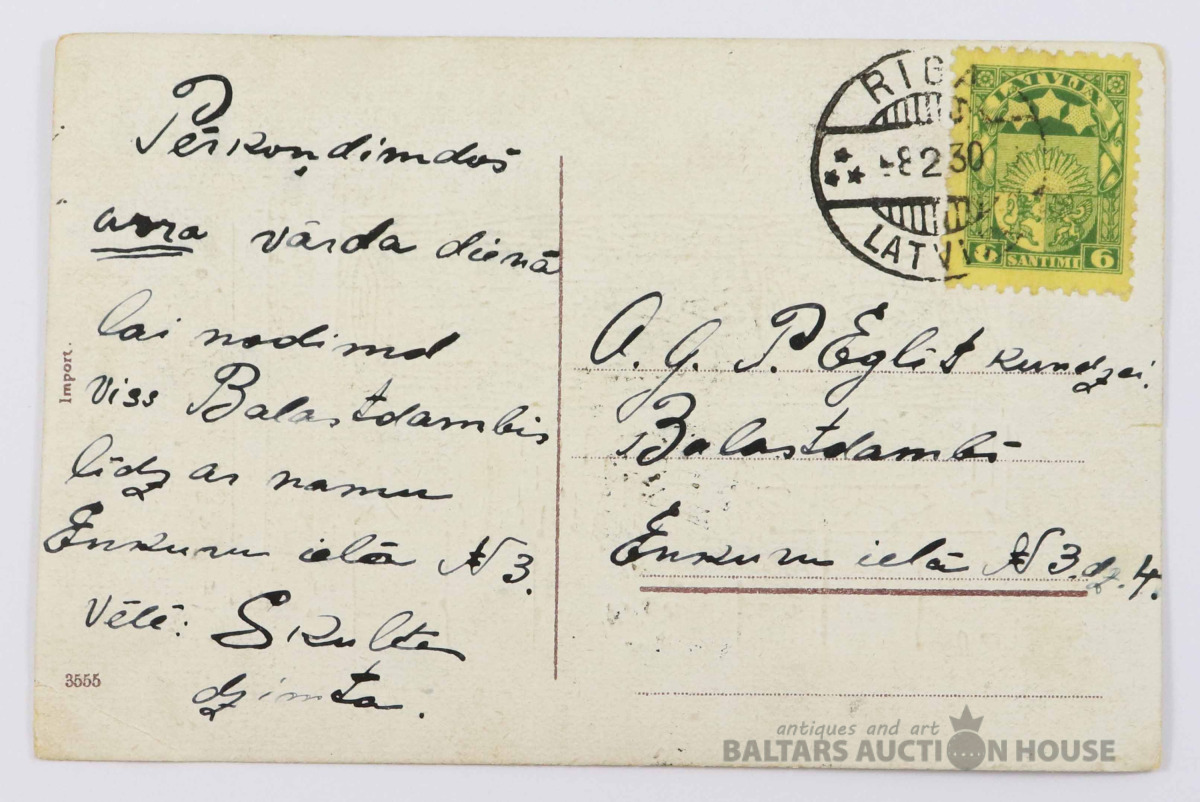 Pērkoņdimdoš
urra vārda dienā
lai nodimd
viss Balastdambis
līdz ar namu
Enkuru ielā N 3.
Vēlē: Skulte
dzimta.
Import.
3555
RIGA
-8 2 30
LATVI
LATVIJA
6 SANTIMI 6
A. g. P. Eglīt kundzei.
Balastdambī
Enkuru ielā N 3. dz. 4.
antiques and art
BALTARS AUCTION HOUSE